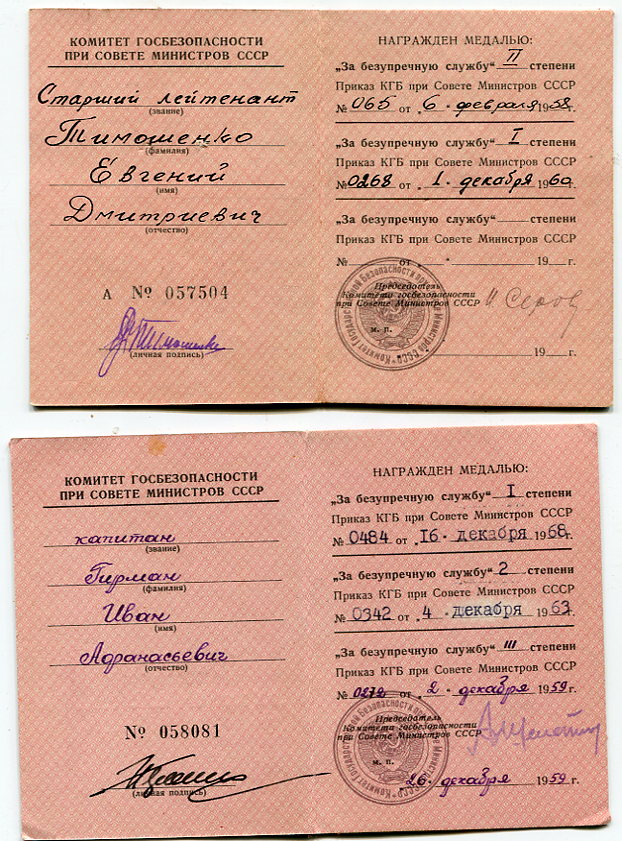 КОМИТЕТ ГОСБЕЗОПАСНОСТИ
ПРИ СОВЕТЕ МИНИСТРОВ СССР
Старший лейтенант
(звание)
Тимошенко
(фамилия)
Евгений
(имя)
Дмитриевич
(отчество)
А № 057504
(личная подпись)
НАГРАЖДЕН МЕДАЛЬЮ:
„За безупречную службу“ II степени
Приказ КГБ при Совете Министров СССР
№ 065 от „6„ февраля 1958г.
„За безупречную службу“ I степени
Приказ КГБ при Совете Министров СССР
№ 0268 от „1„ декабря 1960г.
„За безупречную службу“ степени
Приказ КГБ при Совете Министров СССР
№ от „ „ 19 г.
Председатель
Комитета госбезопасности
при Совете Министров СССР И Серов
м. п.
19 г.
КОМИТЕТ ГОСБЕЗОПАСНОСТИ
ПРИ СОВЕТЕ МИНИСТРОВ СССР
капитан
(звание)
Гирман
(фамилия)
Иван
(имя)
Афанасьевич
(отчество)
№ 058081
(личная подпись)
НАГРАЖДЕН МЕДАЛЬЮ:
„За безупречную службу“ I степени
Приказ КГБ при Совете Министров СССР
№ 0484 от „16„ декабря 1968г.
„За безупречную службу“ 2 степени
Приказ КГБ при Совете Министров СССР
№ 0342 от „4„ декабря 1963г.
„За безупречную службу“ III степени
Приказ КГБ при Совете Министров СССР
№ 0272 от „2„ декабря 1959г.
Председатель
Комитета госбезопасности
при Совете Министров СССР
м. п.
„26„ декабря 1959г.